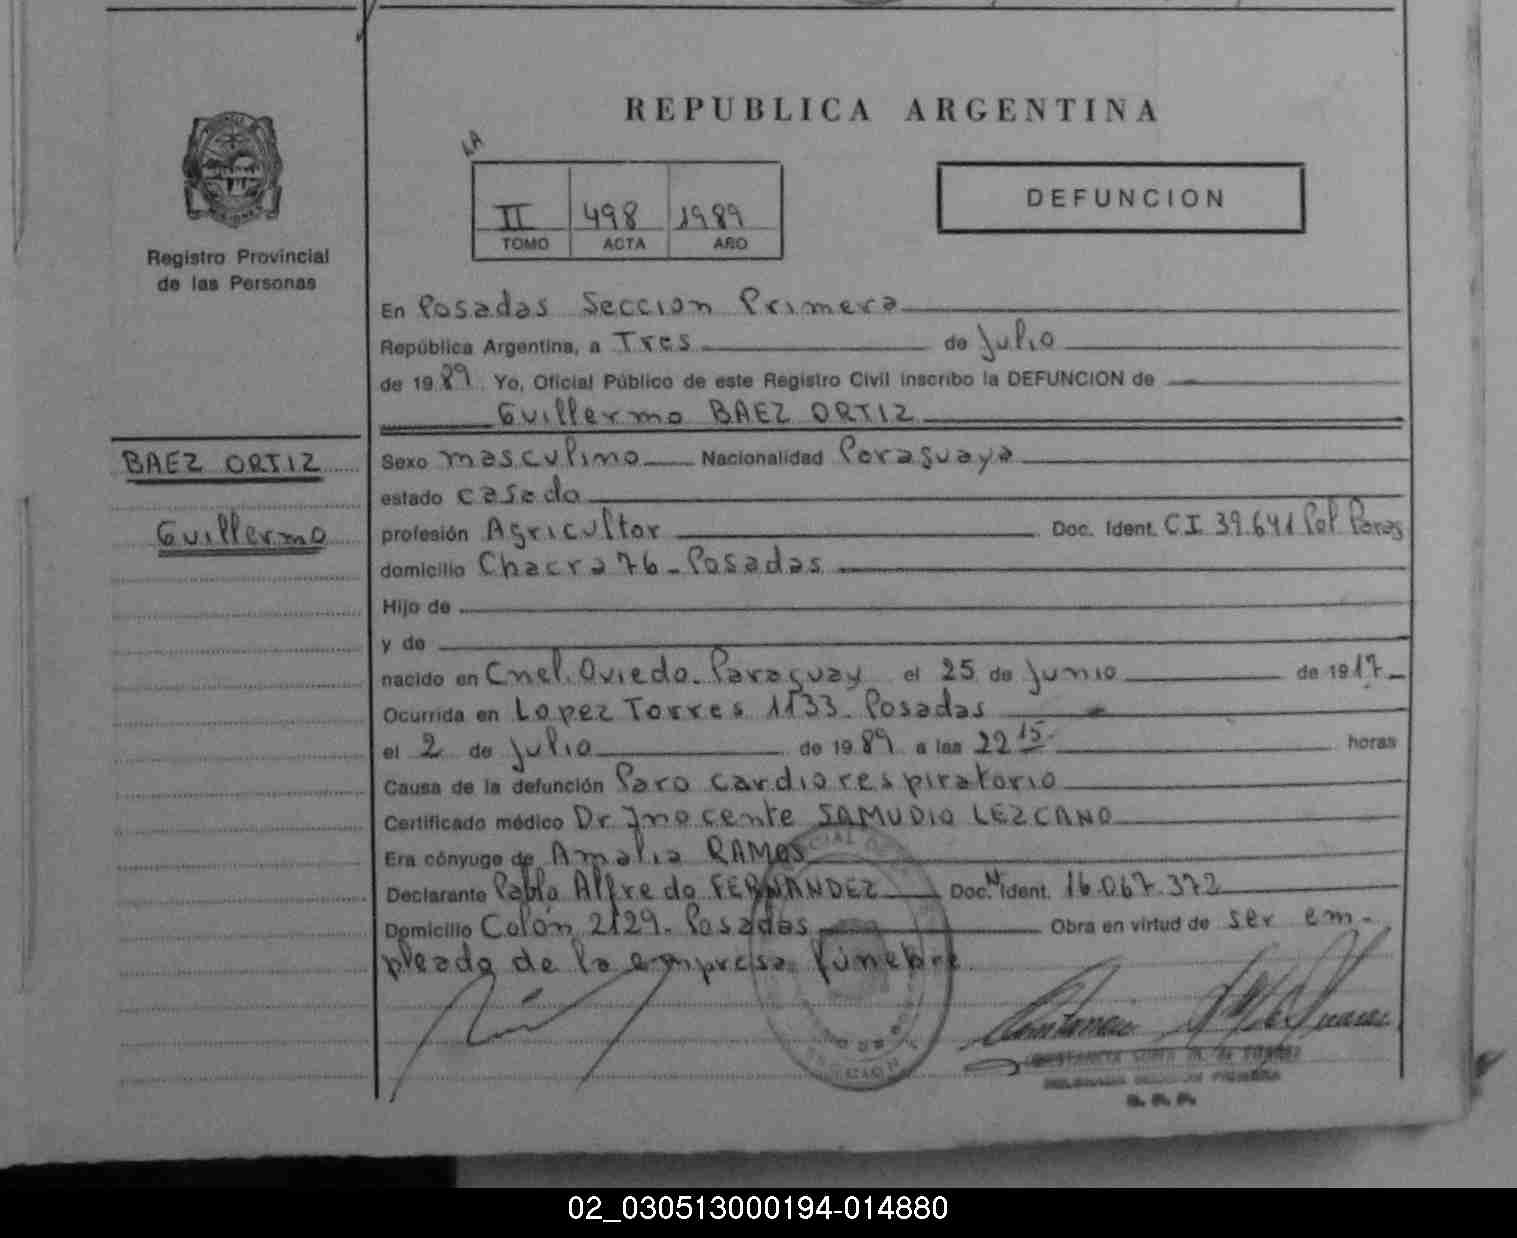 REPUBLICA ARGENTINA
LA
II 498 1989
TOMO ACTA AÑO
DEFUNCION
Registro Provincial
de las Personas
En Posadas Seccion Primera
República Argentina, a Tres de Julio
de 1989 Yo, Oficial Público de este Registro Civil inscribo la DEFUNCION de
Guillermo BAEZ ORTIZ
BAEZ ORTIZ
Guillermo
Sexo masculino Nacionalidad Paraguaya
estado casado
profesión Agricultor Doc. Ident. C.I 39.641 Pol. Parag
domicilio Chacra 76 - Posadas
Hijo de
y de
nacido en Cnel. Oviedo - Paraguay el 25 de Junio de 1917
Ocurrida en Lopez Torres 1133 - Posadas
el 2 de Julio de 1989 a las 22 15 horas
Causa de la defunción Paro cardiorespiratorio
Certificado médico Dr Inocente SAMUDIO LEZCANO
Era cónyuge de Amalia RAMOS
Declarante Pablo Alfredo FERNANDEZ Doc. N Ident. 16.067.372
Domicilio Colón 2129 - Posadas Obra en virtud de ser em-
pleado de la empresa fúnebre
02_030513000194-014880